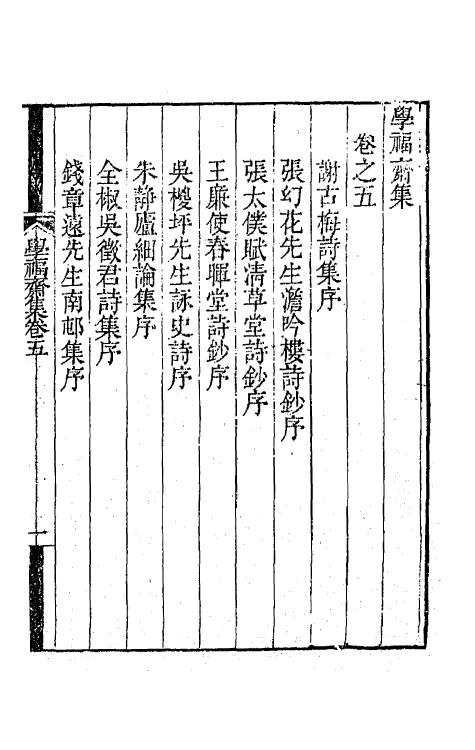 學福齋集
卷之五
謝古梅詩集序
張幻花先生澹吟樓詩鈔序
張太僕賦清草堂詩鈔序
王廉使春暉堂詩鈔序
吳㮣坪先生詠史詩序
朱靜廬細論集序
全椒吳徵君詩集序
錢章遠先生南邨集序
學福齋集卷五
一